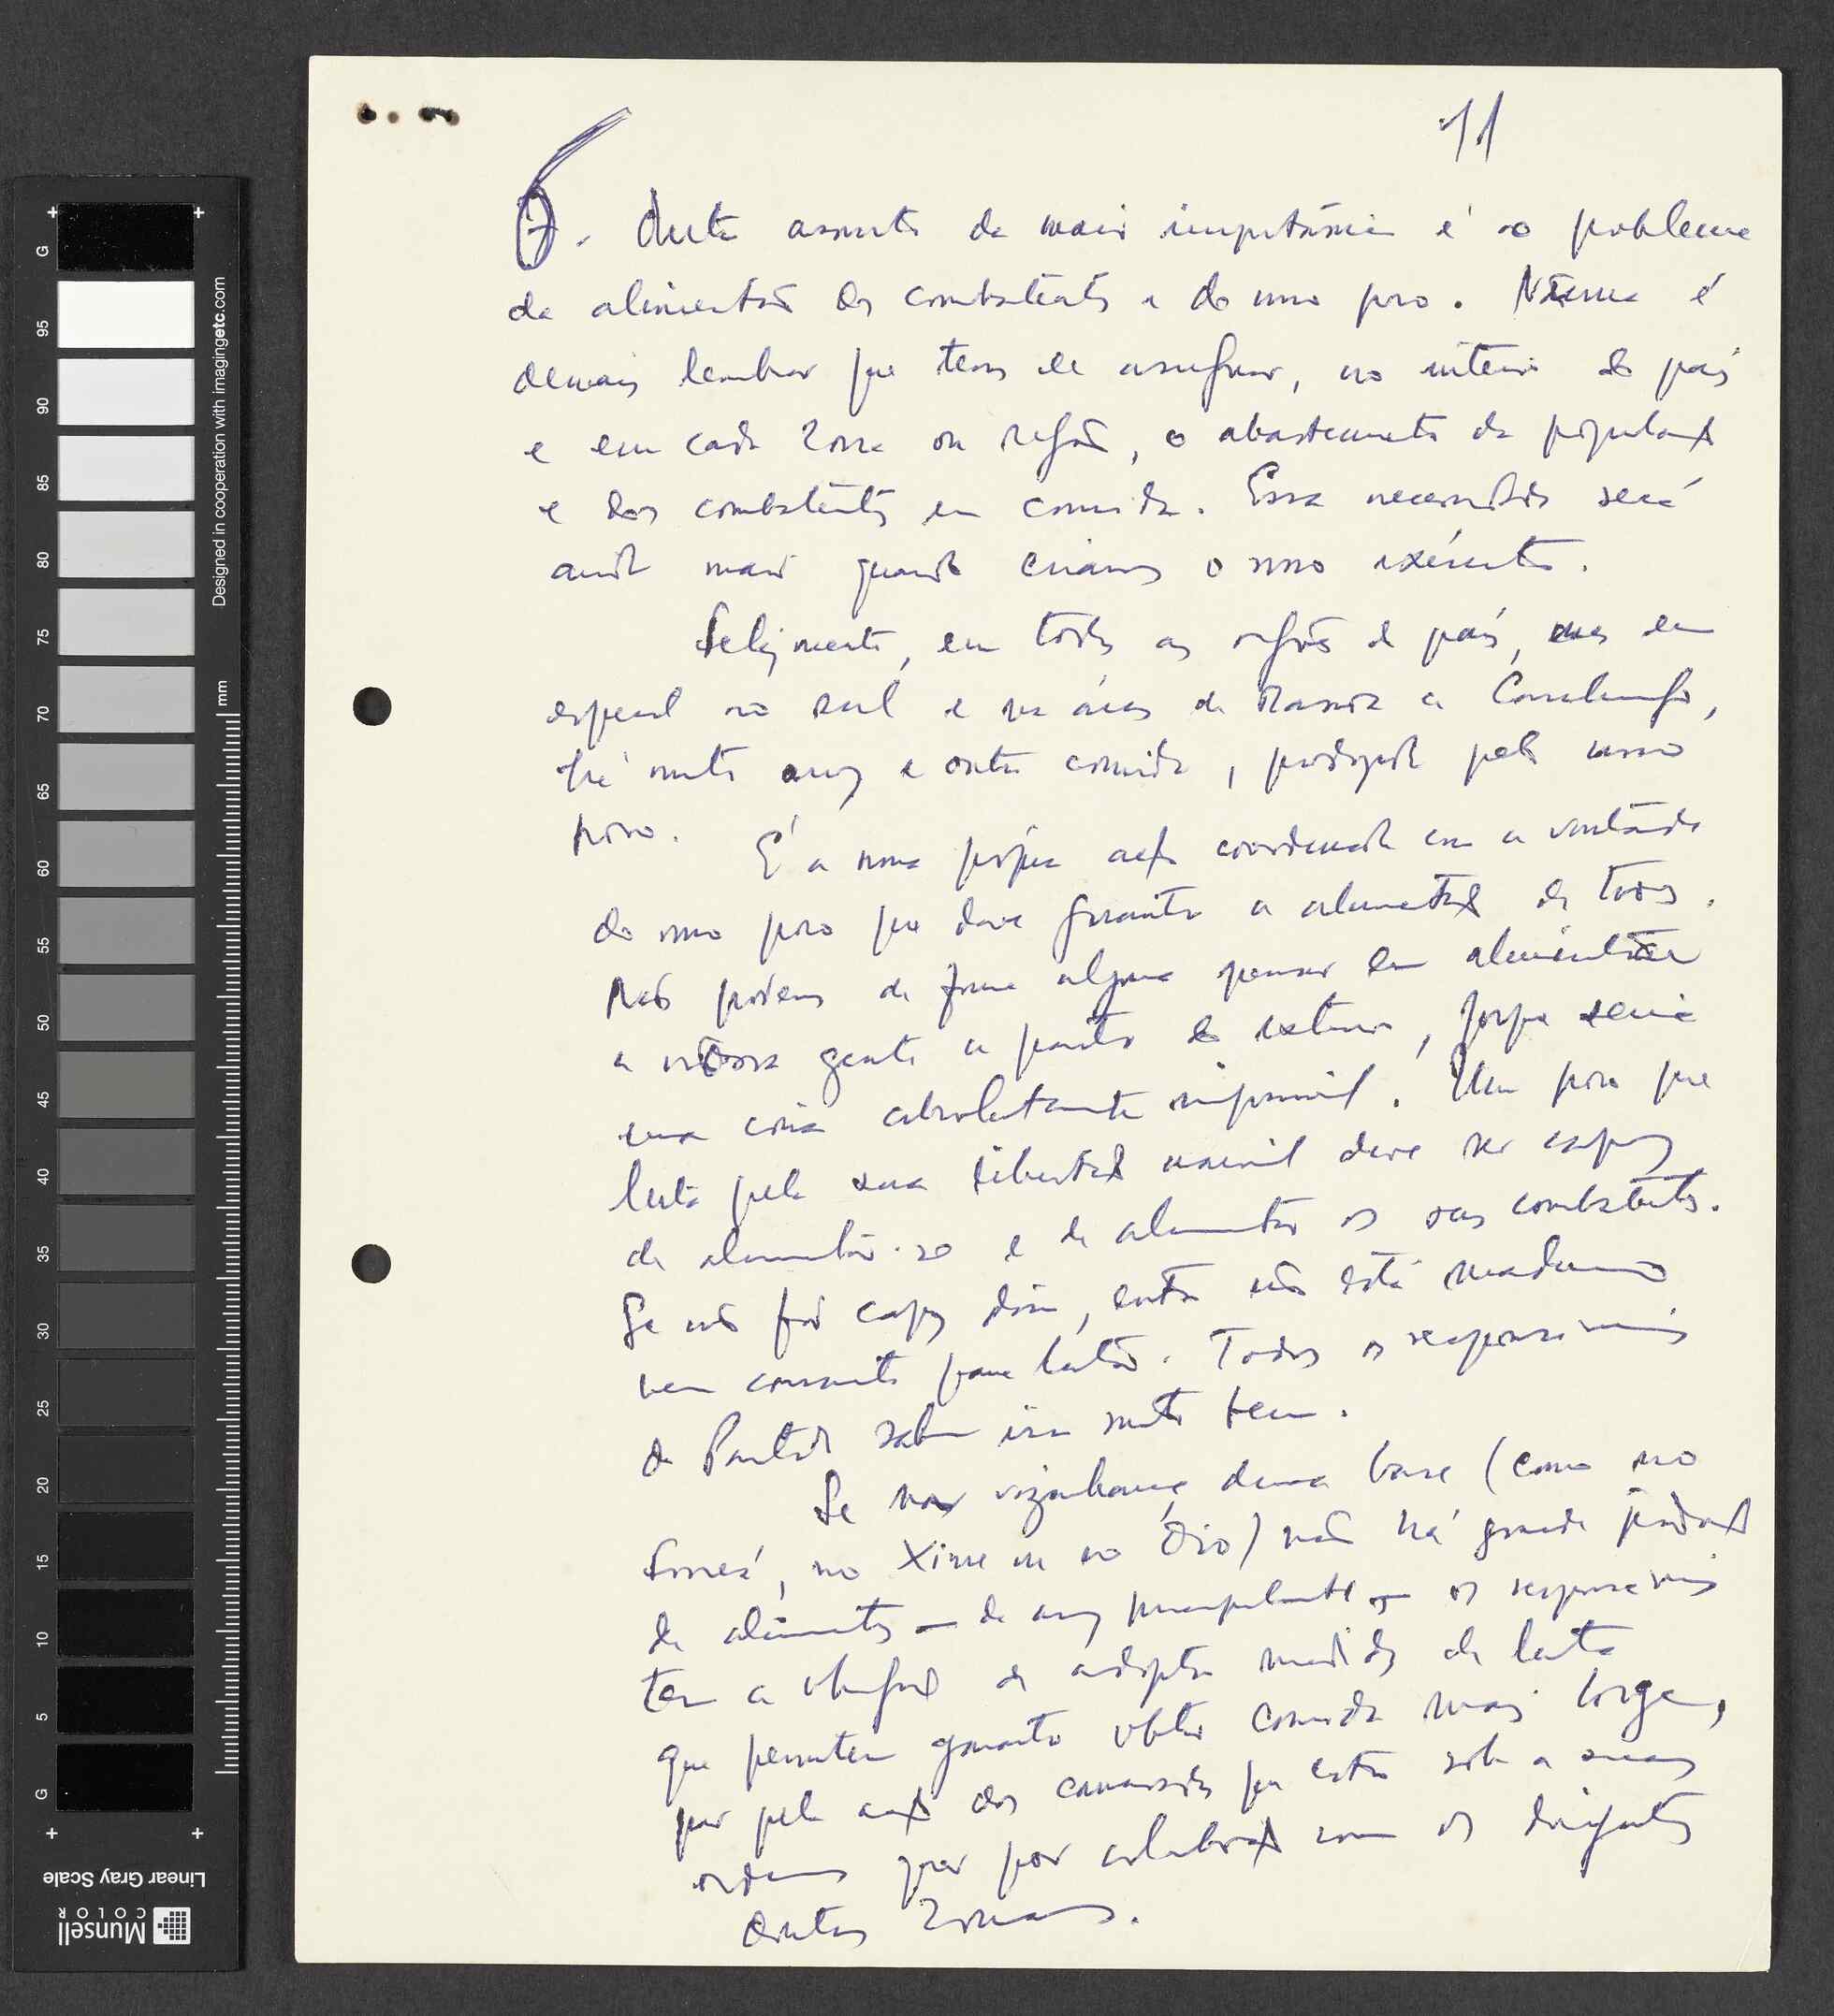 11
6. Outro assunto da maior importância é o problema
da alimentação dos combatentes e do nosso povo. Nunca é
demais lembrar que temos de assegurar, no interior do país
e em cada zona ou região, o abastecimento da população
e dos combatentes em comida. Essa necessidade será
ainda maior quando criarmos o nosso exército.
Felizmente, em todas as regiões do país, mas em
especial no sul e nas áreas de Mansoa a Canchungo,
há muito arroz e outra comida, produzida pelo nosso
povo. É a nossa própria acção coordenada com a vontade
do nosso povo que deve garantir a alimentação de todos.
Não podemos de forma alguma pensar em alimentar
a nossa gente a partir do exterior, porque seria
uma coisa absolutamente impossível. Um povo que
luta pela sua libertação nacional deve ser capaz
de alimentar-se e de alimentar os seus combatentes.
Se não for capaz disso, então não está maduro
nem consciente para lutar. Todos os responsáveis
do Partido sabem isso muito bem.
Se na vizinhança duma base (como no
Morés, no Xime ou no Oio) não há grande produção
de alimentos — de arroz principalmente — os responsáveis
têm a obrigação de adoptar medidas de luta
que permitem garantir obter comida mais longe,
quer pela acção dos camaradas que estão sob as suas
ordens quer por colaboração com os dirigentes
doutras zonas.
G
95
90
85
80
75
70
65
60
55
50
45
40
35
30
25
20
15
10
5
G
mm
Designed in cooperation with imagingetc.com
Linear Gray Scale
Munsell
COLOR